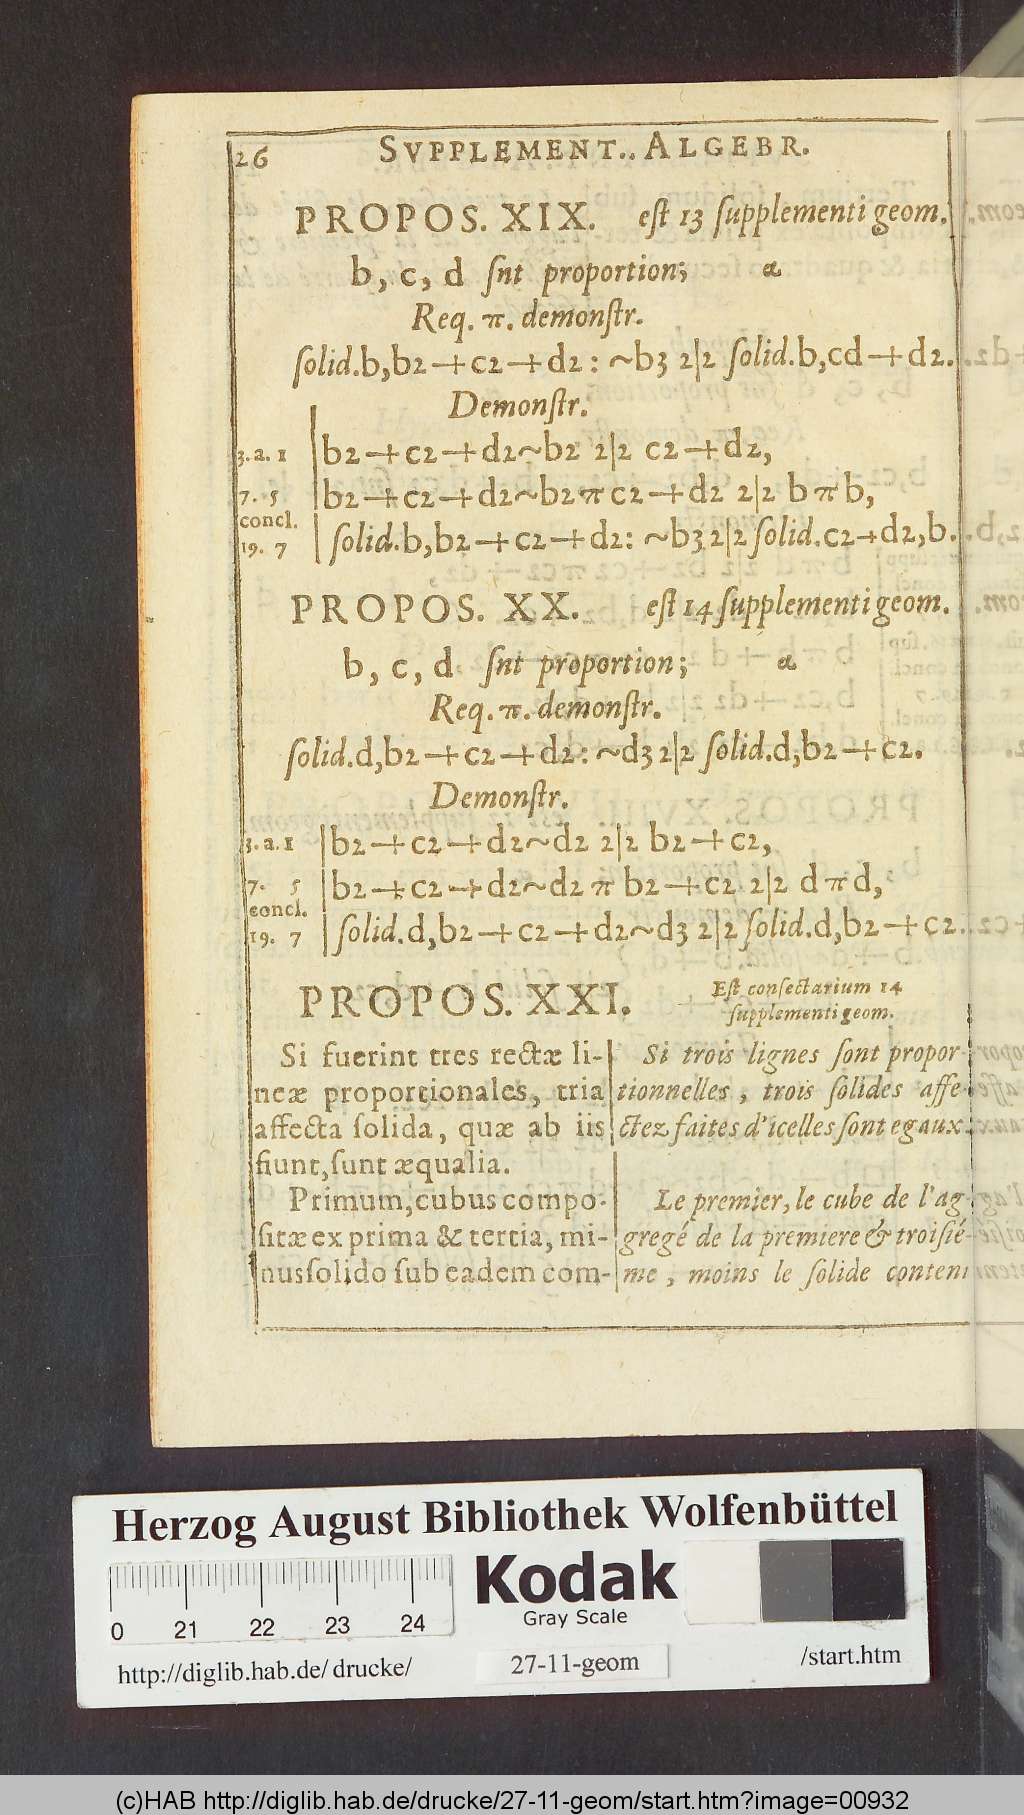 26 SVPPLEMENT.. ALGEBR.
PROPOS. XIX. est 13 supplementi geom.
b, c, d snt proportion; a
Req. π. demonstr.
solid.b,b2+c2+d2: ~b3 2|2 solid.b,cd+d2.
Demonstr.
3. a. 1 b2+c2+d2~b2 2|2 c2+d2,
7. 5 b2+c2+d2~b2πc2+d2 2|2 bπb,
concl.
19. 7 solid.b,b2+c2+d2: ~b3 2|2 solid.c2+d2,b.
PROPOS. XX. est 14 supplementi geom.
b, c, d snt proportion; a
Req. π. demonstr.
solid.d,b2+c2+d2: ~d3 2|2 solid.d,b2+c2.
Demonstr.
3. a. 1 b2+c2+d2~d2 2|2 b2+c2,
7. 5 b2+c2+d2~d2 π b2+c2 2|2 dπd,
concl.
19. 7 solid.d,b2+c2+d2~d3 2|2 solid.d,b2+c2.
PROPOS. XXI. Est consectarium 14
supplementi geom.
Si fuerint tres rectæ li-
neæ proportionales, tria
affecta solida, quæ ab iis
fiunt, sunt æqualia.
Primum, cubus compo-
sitæ ex prima & tertia, mi-
nus solido sub eadem com-
Si trois lignes sont propor-
tionnelles, trois solides affe-
ctez faites d'icelles sont egaux:
Le premier, le cube de l'ag-
gregé de la premiere & troisié-
me, moins le solide conten
Herzog August Bibliothek Wolfenbüttel
Kodak
Gray Scale
0 21 22 23 24
http://diglib.hab.de/drucke/ 27-11-geom /start.htm
(c)HAB http://diglib.hab.de/drucke/27-11-geom/start.htm?image=00932